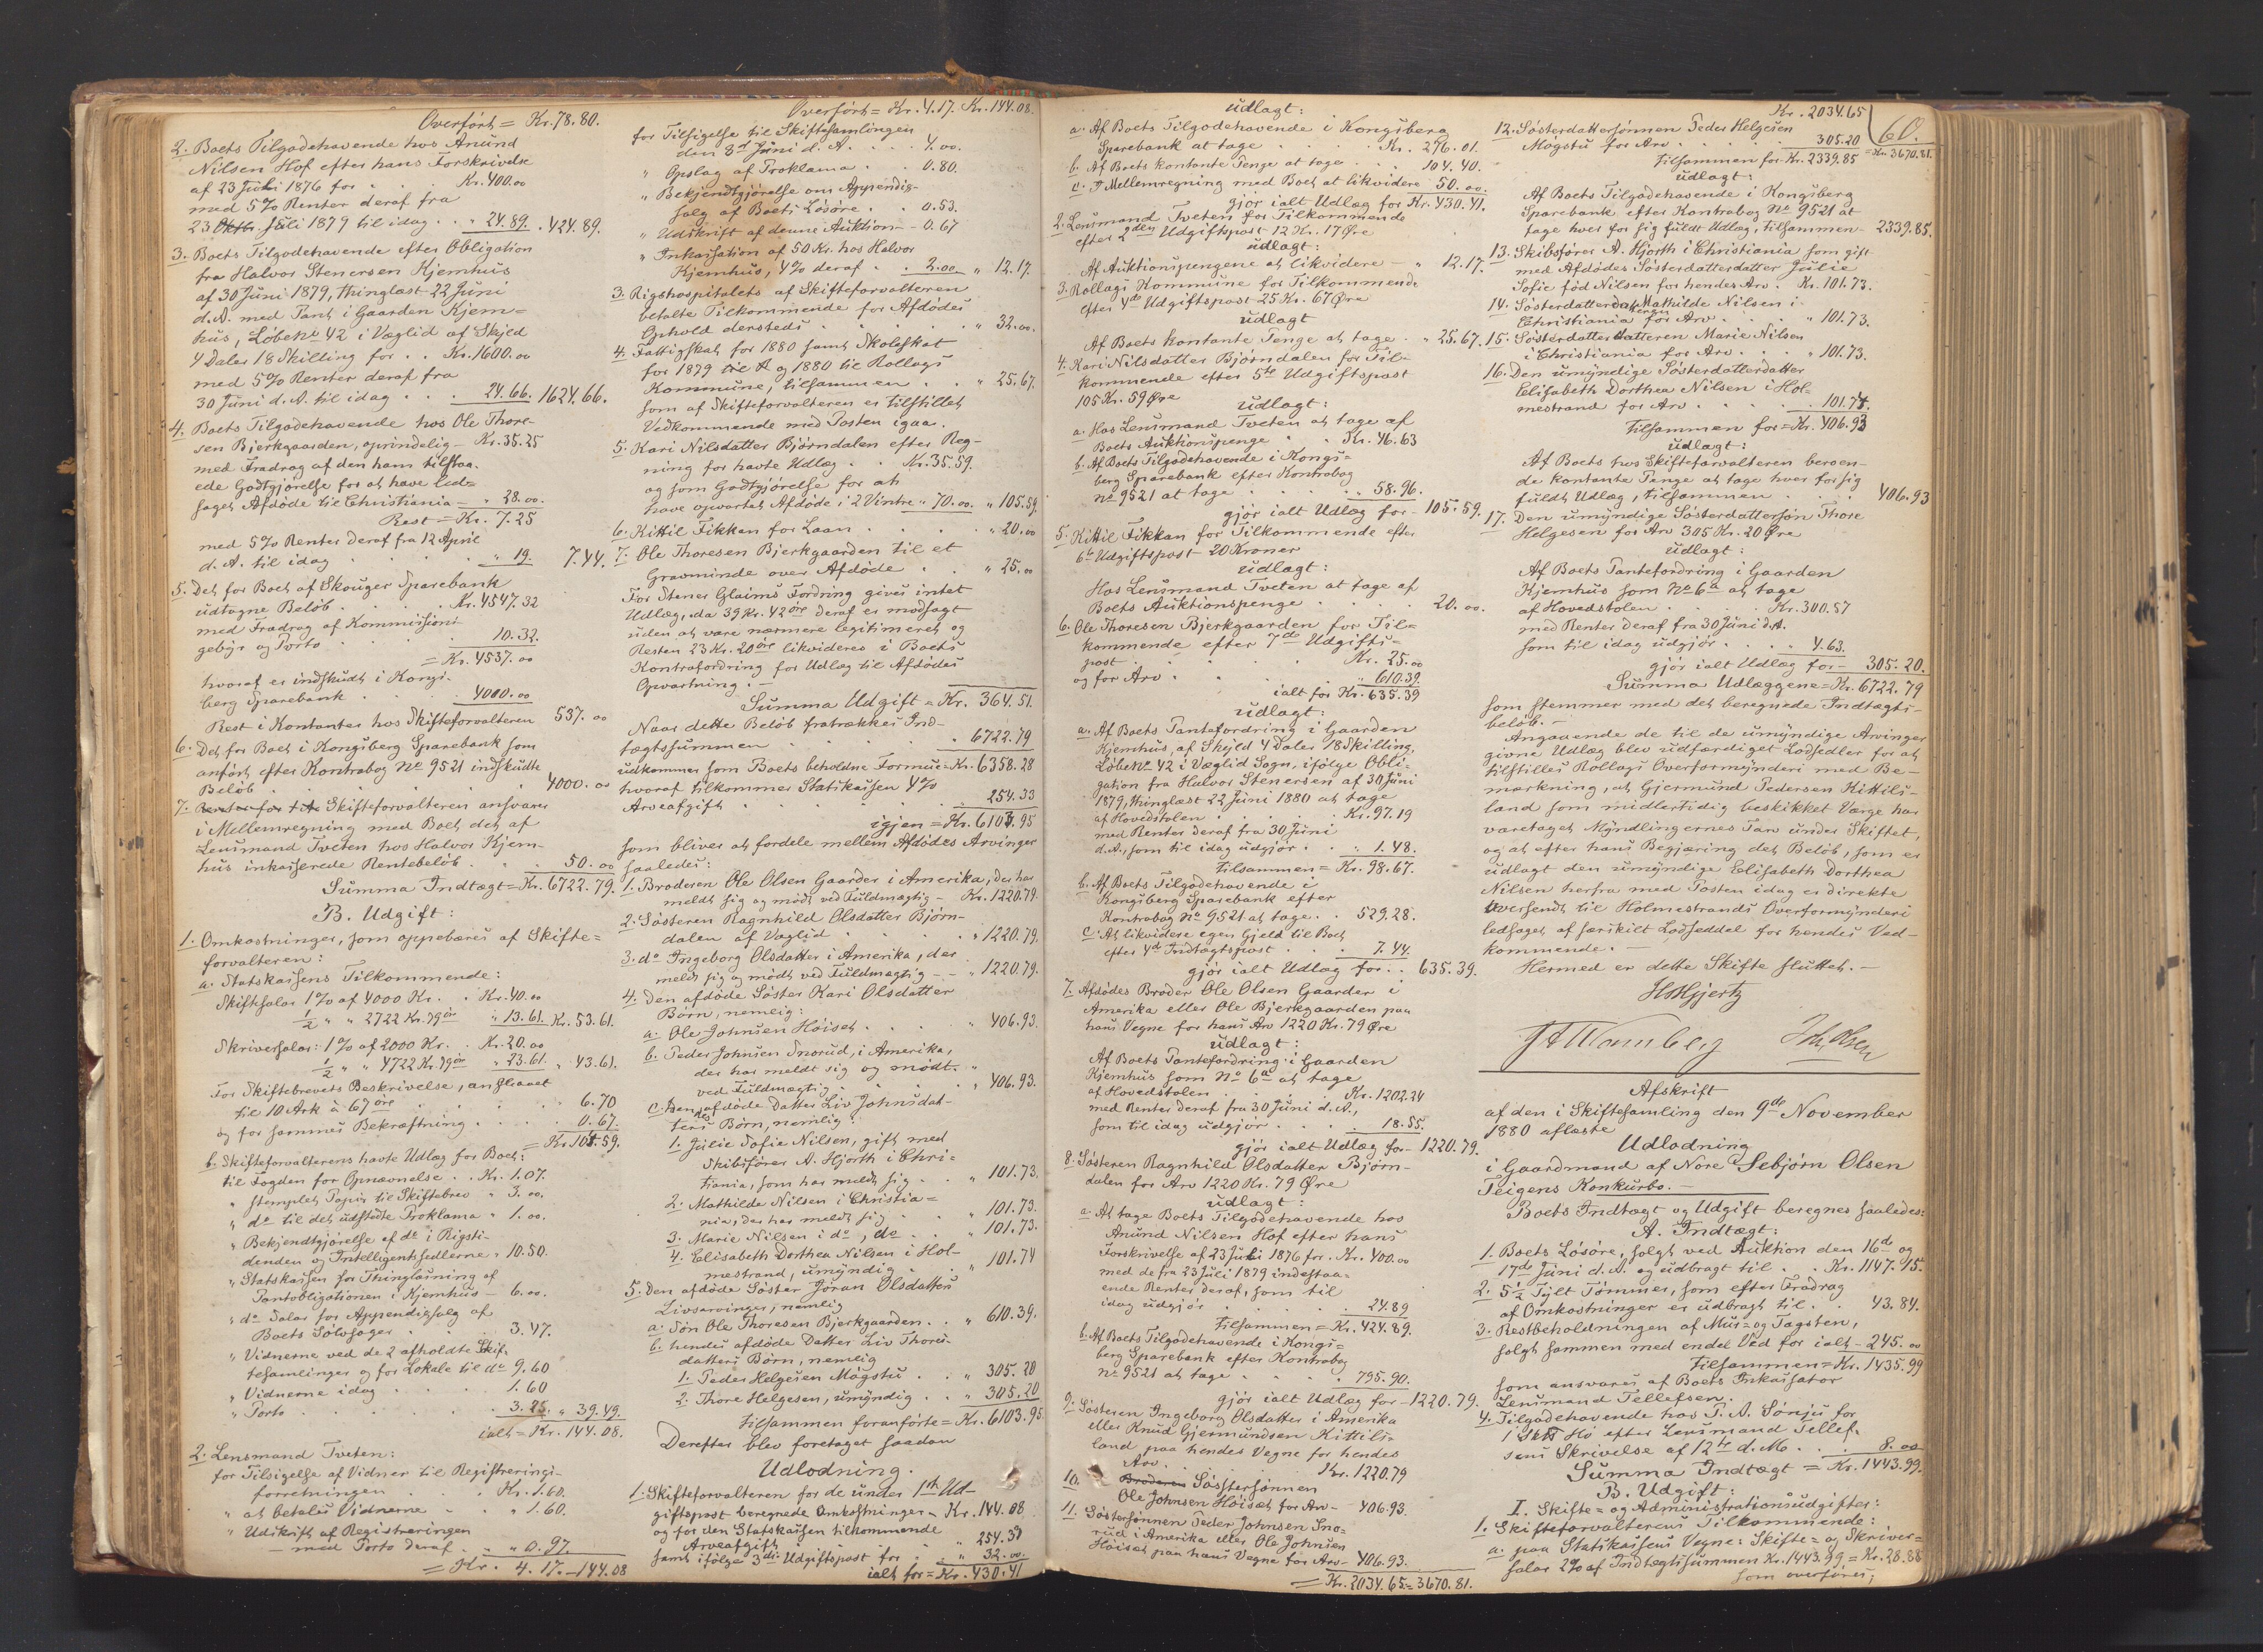 Overført = Kr. 78.80.
2. Boets Tilgodehavende hos Anund
Nilsen Hof efter hans Forskrivelse
af 23 Juli 1876 for . . Kr. 400.00
med 5% Renter deraf fra
23 Juli 1879 til idag . . " 24.89. . 424.89.
3. Boets Tilgodehavende efter Obligation
fra Halvor Stenersen Kjemhus
af 30 Juni 1879, thinglæst 22 Juni
d.A. med Pant i Gaarden Kjem=
hus, Løbe No 42 i Væglid af Skyld
4 Daler 18 Skilling for . . Kr. 1600.00
med 5% Renter deraf fra
30 Juni d.A. til idag . . . 24.66. 1624.66.
4. Boets Tilgodehavende hos Ole Thore-
sen Bjerkgaarden, oprindelig - Kr. 35.25
med Fradrag af den ham tilstaa-
ede Godtgjørelse for at have led=
saget Afdøde til Christiania = " 28.00.
Rest = Kr. 7.25
med 5% Renter deraf fra 12 April
d.A. til idag . . . . " 19. 7.44.
5. Det for Boet af Skouger Sparebank
udtagne Beløb . . . Kr. 4547.32
med Fradrag af Kommissions
gebyr og Porto . . . 10.32.
= Kr. 4537.00
hvoraf er indskudt i Kongs-
berg Sparebank . . . 4000.00
Rest i Kontanter hos Skifteforvalteren 537.00
6. Det for Boet i Kongsberg Sparebank som
anført efter Kontrabog No 9521 indskudte
Beløb . . . . . . 4000.00
7. Skifteforvalteren ansvarer
i Mellemregning med Boet det af
Lensmand Tveten hos Halvor Kjem-
hus inkasserede Rentebeløb . . . 50.00
Summa Indtægt = Kr. 6722.79.
B. Udgift:
1. Omkostninger, som oppebæres af Skifte=
forvalteren:
a. Statskassens Tilkommende:
Skiftesalær 1% af 4000 Kr. . Kr. 40.00
1/2 " " 2722 Kr. 79 øre " 13.61. Kr. 53.61.
Skriversalær: 1% af 2000 Kr. . Kr. 20.00
1/2 " " 4722 Kr. 79 øre " 23.61. " 43.61.
For Skiftebrevets Beskrivelse, anslaaet
til 10 Ark à 67 øre . . . . " 6.70
og for sammes Bekræftning . . . . 0.67.
= Kr. 104.59.
b. Skifteforvalterens havte Udlæg for Boet:
til Fogden for Opnævnelse . . Kr. 1.07.
" stemplet Papir til Skiftebrev " 3.00.
" do til det udstedte Proklama " 1.00.
" Bekjendtgjørelse af do i Rigsti-
denden og Intelligentssedlerne " 10.50.
" Statskassen for Thinglæsning af
Pantobligationen i Kjemhus - 6.00.
" do Salær for Appendixsalg af
Boets Sølvsager . . . 3.47.
" Vidnerne ved de 2 afholdte Skif-
tesamlinger og for Lokale til do 9.60
" Vidnerne idag . . . . 1.60
" Porto . . . . . 3.25. " 39.49.
ialt = Kr. 144.08.
2. Lensmand Tveten:
for Tilsigelse af Vidner til Registrerings-
forretningen . . . Kr. 1.60.
" at betale Vidnerne . . " 1.60.
" Udskrift af Registreringen
med Porto deraf . . " 0.97.
= Kr. 4.17. - 144.08
Overført = Kr. 4.17. Kr. 144.08.
for Tilsigelse til Skiftesamlingen
den 8d Juni d.A. . . . 4.00.
" Opslag af Proklama . . 0.80.
" Bekjendtgjørelse om Appendix-
salg af Boets Løsøre . . 0.53.
" Udskrift af denne Auktion - 0.67
" Inkassation af 50 Kr. hos Halvor
Kjemhus, 4% deraf . . 2.00 " 12.17.
3. Rigshospitalets af Skifteforvalteren
betalte Tilkommende for Afdødes
Ophold dersteds . . . . " 32.00.
4. Fattigskat for 1880 samt Skoleskat
for 1879 og 1880 til Rollags
Kommune, tilsammen . . " 25.67.
som af Skifteforvalteren er tilstillet
Vedkommende med Posten igaar.
5. Kari Nilsdatter Bjørndalen efter Reg-
ning for havte Udlæg . . Kr. 35.59.
og som Godtgjørelse for at
have opvartet Afdøde i 2 Vintre " 70.00. " 105.59.
6. Kittil Fikkan for Laan . . . " 20.00
7. Ole Thoresen Bjerkgaarden til et
Gravminde over Afdøde . . " 25.00
For Stener Glaims Fordring gives intet
Udlæg, da 39 Kr. 42 øre deraf er modsagt
uden at være nærmere legitimeret og
Resten 23 Kr. 20 øre likvideres i Boets
Kontrafordring for Udlæg til Afdødes
Opvartning. -
Summa Udgift = Kr. 364.51.
Naar dette Beløb fratrækkes Ind-
tægtssummen . . . . . " 6722.79
udkommer som Boets beholdne Formue = Kr. 6358.28
hvoraf tilkommer Statskassen 4%
Arveafgift . . . . . . 254.33
igjen = Kr. 6103.95
som bliver at fordele mellem Afdødes Arvinger
saaledes:
1. Broderen Ole Olsen Gaarder i Amerika, der har
meldt sig og mødt ved Fuldmægtig - Kr. 1220.79.
2. Søsteren Ragnhild Olsdatter Bjørn-
dalen af Væglid . . . . " 1220.79.
3. do Ingeborg Olsdatter i Amerika, der
meldt sig og mødt ved Fuldmægtig - - " 1220.79.
4. Den afdøde Søster Kari Olsdatter
Børn, nemlig:
a. Ole Johnsen Høiset . . . " 406.93.
b. Peder Johnsen Snorud, i Amerika,
der har meldt sig og mødt
ved Fuldmægtig . . . . " 406.93.
c. Den afdøde Datter Liv Johnsdat-
ters Børn, nemlig:
1. Julie Sofie Nilsen, gift med
Skibsfører A. Hjorth i Chri-
stiania, som har meldt sig . . " 101.73.
2. Mathilde Nilsen i Christia=
nia, der har meldt sig . . " 101.73.
3. Marie Nilsen i do, do . . " 101.73.
4. Elisabeth Dorthea Nilsen i Hol-
mestrand, umyndig . . " 101.74
5. Den afdøde Søster Jøran Olsdatters
Livsarvinger, nemlig
a. Søn Ole Thoresen Bjerkgaarden . . " 610.39.
b. hendes afdøde Datter Liv Thores-
datters Børn, nemlig
1. Peder Helgesen Mogstu . . " 305.20
2. Thore Helgesen, umyndig . . " 305.20
tilsammen foranførte = Kr. 6103.95
Derefter blev foretaget saadan
Udlodning.
1. Skifteforvalteren for de under 1ste Ud-
giftspost beregnede Omkostninger - Kr. 144.08
og for den Statskassen tilkommende
Arveafgift . . . . " 254.33
samt ifølge 3die Udgiftspost for . . " 32.00.
ialt for = Kr. 430.41
udlagt:
a. Af Boets Tilgodehavende i Kongsberg
Sparebank at tage . . . . Kr. 276.01.
b. Af Boets kontante Penge at tage . . . 104.40.
c. I Mellemregning med Boet at likvidere 50.00.
gjør ialt Udlæg for Kr. 430.41.
2. Lensmand Tveten for Tilkommende
efter 2den Udgiftspost 12 Kr. 17 Øre
udlagt:
Af Auktionspengene at likvidere - " 12.17.
3. Rollags Kommune for Tilkommende
efter 4de Udgiftspost 25 Kr. 67 Øre
udlagt
Af Boets kontante Penge at tage . " 25.67.
4. Kari Nilsdatter Bjørndalen for Til-
kommende efter 5te Udgiftspost
105 Kr. 59 Øre
udlagt:
a. Hos Lensmand Tveten at tage af
Boets Auktionspenge . . Kr. 46.63
b. Af Boets Tilgodehavende i Kongs=
berg Sparebank efter Kontrabog
No 9521 at tage . . . . 58.96.
gjør ialt Udlæg for - 105.59.
5. Kittil Fikkan for Tilkommende efter
6te Udgiftspost 20 Kroner
udlagt:
Hos Lensmand Tveten at tage af
Boets Auktionspenge . . . . 20.00.
6. Ole Thoresen Bjerkgaarden for Til=
kommende efter 7de Udgifts=
post . . . . . Kr. 25.00
og for Arv . . . . " 610.39.
ialt for Kr. 635.39
udlagt:
a. Af Boets Pantefordring i Gaarden
Kjemhus, af Skyld 4 Daler 18 Skilling,
Løbe No 42 i Væglid Sogn, ifølge Obli-
gation fra Halvor Stenersen af 30 Juni
1879, thinglæst 22 Juni 1880 at tage
af Hovedstolen . . . . Kr. 97.19
med Renter deraf fra 30 Juni
d.A., som til idag udgjør . . " 1.48.
tilsammen = Kr. 98.67.
b. Af Boets Tilgodehavende i
Kongsberg Sparebank efter
Kontrabog No 9521 at tage . . 529.28.
c. At likvidere egen Gjeld til Boet
efter 4de Indtægtspost . . . 7.44.
gjør ialt Udlæg for . . 635.39.
7. Afdødes Broder Ole Olsen Gaarder i
Amerika eller Ole Bjerkgaarden paa
hans Vegne for hans Arv 1220 Kr. 79 Øre
udlagt:
Af Boets Pantefordring i Gaarden
Kjemhus som No 6a at tage
af Hovedstolen . . . . Kr. 1202.24
med Renter deraf fra 30 Juni d.A.,
som til idag udgjør . . . . 18.55.
gjør ialt Udlæg for - 1220.79.
8. Søsteren Ragnhild Olsdatter Bjørn-
dalen for Arv 1220 Kr. 79 Øre
udlagt:
a. At tage Boets Tilgodehavende hos
Anund Nilsen Hof efter hans
Forskrivelse af 23 Juli 1876 for . Kr. 400.00
med de fra 23 Juli 1879 indestaa=
ende Renter deraf, som til
idag udgjør . . . . . 24.89
tilsammen = Kr. 424.89.
b. Af Boets Tilgodehavende i Kongs=
berg Sparebank efter Kontrabog
No 9521 at tage . . . . 795.90.
gjør ialt Udlæg for - 1220.79.
9. Søsteren Ingeborg Olsdatter i Amerika
eller Knud Gjermundsen Kittils-
land paa hendes Vegne for hendes
Arv . . . . . Kr. 1220.79
10. Broderen Søstersønnen
Ole Johnsen Høiset for Arv - 406.93.
11. Søstersønnen Peder Johnsen Sno=
rud i Amerika eller Ole Johnsen
Høiset paa hans Vegne for Arv - 406.93.
= Kr. 2034.65 = 3670.81.
60.
Kr. 2034.65
12. Søsterdattersønnen Peder Helgesen
Mogstu for Arv . . . . . 305.20
tilsammen for Kr. 2339.85 = Kr. 3670.81.
udlagt:
Af Boets Tilgodehavende i Kongsberg
Sparebank efter Kontrabog No 9521 at
tage hver for sig fuldt Udlæg, tilsammen - 2339.85.
13. Skibsfører A. Hjorth i Christiania som gift
med Afdødes Søsterdatterdatter Julie
Sofie fød Nilsen for hendes Arv . Kr. 101.73.
14. Søsterdatterdatteren Mathilde Nilsen i
Christiania for Arv . . . . " 101.73.
15. Søsterdatterdatteren Marie Nilsen
i Christiania for Arv . . . . " 101.73.
16. Den umyndige Søsterdatterdatter
Elisabeth Dorthea Nilsen i Hol=
mestrand for Arv . . . . 101.74.
tilsammen for = Kr. 406.93
udlagt:
Af Boets hos Skifteforvalteren beroen-
de kontante Penge at tage hver for sig
fuldt Udlæg, tilsammen . . . 406.93
17. Den umyndige Søsterdattersøn Thore
Helgesen for Arv 305 Kr. 20 Øre
udlagt:
Af Boets Pantefordring i Gaarden
Kjemhus som No 6a at tage
af Hovedstolen . . . . Kr. 300.57
med Renter deraf fra 30 Juni d.A.
som til idag udgjør . . . . 4.63.
gjør ialt Udlæg for - 305.20.
Summa Udlæggene = Kr. 6722.79
som stemmer med det beregnede Indtægts-
beløb. -
Angaaende de til de umyndige Arvinger
givne Udlæg blev udfærdiget Lodsedler for at
tilstilles Rollags Overformynderi med Be-
mærkning, at Gjermund Pedersen Kittils-
land som midlertidig beskikket Værge har
varetaget Myndlingernes Tarv under Skiftet,
og at efter hans Begjæring det Beløb, som er
udlagt den umyndige Elisabeth Dorthea
Nilsen herfra med Posten idag er direkte
oversendt til Holmestrands Overformynderi
ledsaget af særskilt Lodseddel for hendes Ved-
kommende. -
Hermed er dette Skifte sluttet. -
Afskrift
af den i Skiftesamling den 9de November
1880 aflæste
Udlodning
i Gaardmand af Nore Sebjørn Olsen
Teigens Konkursbo. -
Boets Indtægt og Udgift beregnes saaledes:
A. Indtægt:
1. Boets Løsøre, solgt ved Auktion den 16de og
17de Juni d.A. og udbragt til . . Kr. 1147.15.
2. 5 1/2 Tylt Tømmer, som efter Fradrag
af Omkostninger er udbragt til . . 43.84.
3. Restbeholdningen af Mur= og Tagsten,
solgt sammen med endel Ved for ialt - 245.00
tilsammen = Kr. 1435.99
som ansvares af Boets Inkassator
Lensmand Tellefsen.
4. Tilgodehavende hos T. A. Sønju for
1 Hø efter Lensmand Tellef-
sens Skrivelse af 12te d.M. . . . 8.00
Summa Indtægt = Kr. 1443.99.
B. Udgift:
I. Skifte= og Administrationsudgifter:
1. Skifteforvalterens Tilkommende:
a. paa Statskassens Vegne: Skifte= og Skriver=
salær 2% af Indtægtssummen Kr. 1443.99 = Kr. 28.88
som overføres;